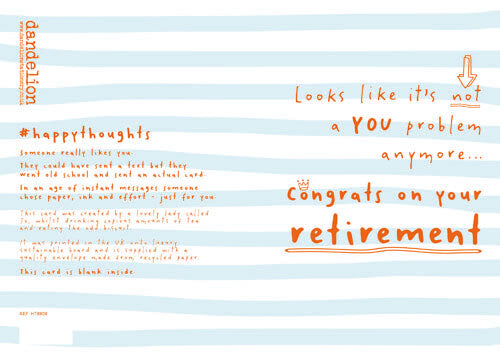 dandelion
#happythoughts
Someone really likes you.
They could have sent a text but they
went old school and sent an actual card.
In an age of instant messages someone
chose paper, ink and effort - just for you.
This card was created by a lovely lady called
Jo, whilst drinking copious amounts of tea
and eating the odd biscuit.
It was printed in the UK onto luxury
sustainable board and is supplied with a
quality envelope made from recycled paper.
This card is blank inside
Looks like it's not
a YOU problem
anymore...
congrats on your
retirement